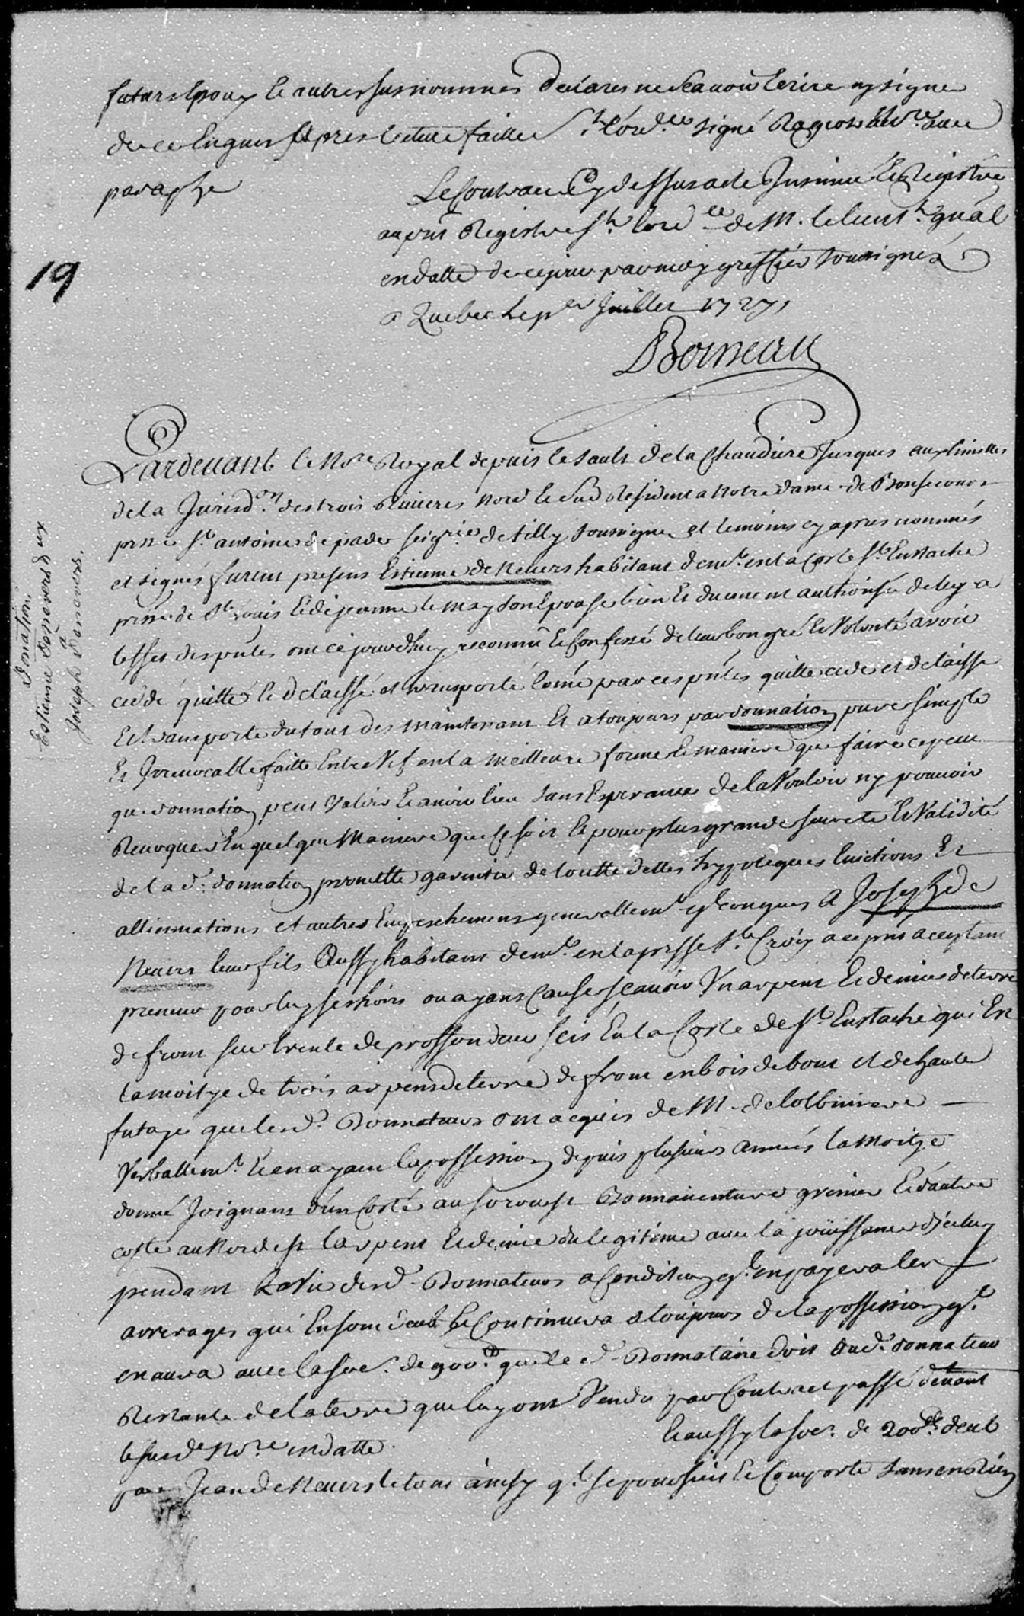 futurs Epoux et autres susnommés declarés ne sçauoir Ecrire ny signer
de ce Enquis appres lecture faitte signé Rageot Nore auec
paraphe
Le Contract Cy dessus a eté Insinué et Registré
au pnt Registre de M. le lieut gnâl
en datte de ce jour par moy greffier soussigné
a Quebec le per Juillet 1727
Boisseau
19
Donnation
Estienne Denevers dit
à
Joseph Denevers.
Pardeuant le Nore Royal depuis le sault de la Chaudiere jusques aux limittes
de la Jurisdon des trois Riuieres Nord et Sud Resident a Notre dame de Bonsecours
St antoine de pade seigrie de Tilly soussigné et temoins cy apres nommés
et signés furent presens Estienne de Neuers habitant demt en la Coste St Eustache
psse de St Louis et dejeanne le may son Epouse bien et duement authorisée de luy a
l'effet des pntes ont cejourdhuy reconnu et Confessé de leur bon gré et Volonté avoir
cedé quitté et delaissé et transporté comme par ces pntes quitte cede et delaisse
Et transporte du tout des maintenant et a toujours par donnation pure simple
Et Irrevocable faitte Entre Vif en la meilleure forme et maniere que faire ce peut
que donnation peut Valoir et avoir lieu sans Esperance de la Vouloir ny pouvoir
Revoquer En quelque Maniere que ce soit et pour plus grande sureté et Validité
de la de donnation promette garentir de toutte dettes hypoteques Euictions Et
allienations et autres Empeschemens generallemt qlconques a Joseph de
Neuers leur fils Aussy habitant demt en la psse Ste Croix a ce pnt acceptant
preneur pour luy ses hoirs ou ayans Cause sçauoir Un arpent et demie de terre
de front sur trente de proffondeur scis En la Coste de St Eustache qui Est
la moitye de trois arpens de terre de front en bois debout et de haute
futaye que lesd. Donnateurs ont acquis de M. de lotbiniere
Verballemt Et en ayant la possession depuis plusieurs années la moitye
donné Joignant d'un Costé au sorouest Bonnauenture grenier Et d'autre
costé au Nordest l'arpent et demie du legitime auec la jouissance d'iceluy
pendant la vie desd. Donnateurs a Condition ql en payera les
arrerages qui En sont deub Et Continuera a toujours de la possession ql
en aura auec la soe de 900 que led. Donnataire doit aud. donnateur
Restante de la terre que luy ont Vendu par Contract passé devant
le susd Nore en datte Et aussy la soe de 200 deub
par Jean de Neuers le tout ainsy ql se poursuit et Comporte sans en Rien